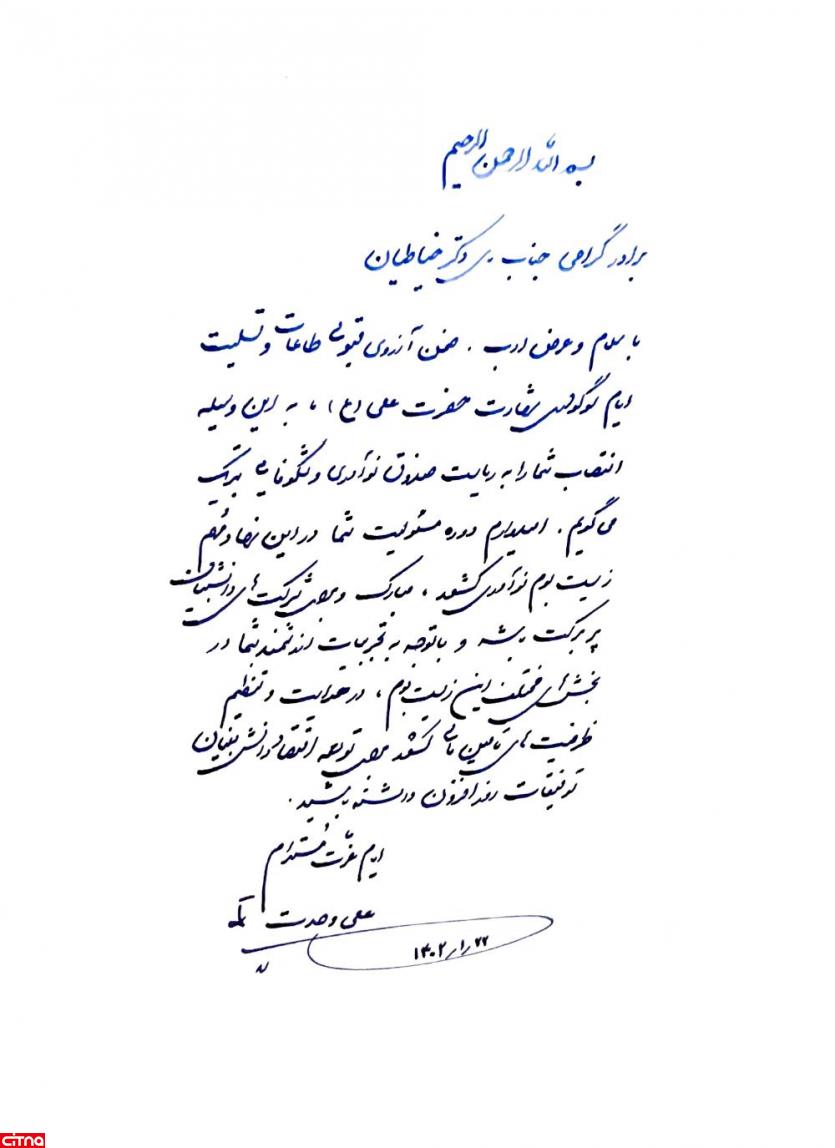 بسم الله الرحمن الرحیم
برادر گرامی جناب آقای دکتر خیاطیان
با سلام و عرض ادب. ضمن آرزوی قبولی طاعات و تسلیت
ایام سوگواری شهادت حضرت علی (ع)، به این وسیله
انتصاب شما را به ریاست صندوق نوآوری و شکوفایی تبریک
می‌گویم. امیدوارم دوره مسئولیت شما در این نهاد مهم
زیست بوم نوآوری کشور، مبارک و برای شرکت‌های دانش‌بنیان
پر برکت باشد و با توجه به تجربیات ارزشمند شما در
بخش‌های مختلف این زیست بوم، در هدایت و تنظیم
ظرفیت‌های تامین مالی کشور برای توسعه اقتصاد دانش بنیان
توفیقات روزافزون داشته باشید.
ایام عزت مستدام
علی وحدت
۱۴۰۲/۱/۲۲
CITNA